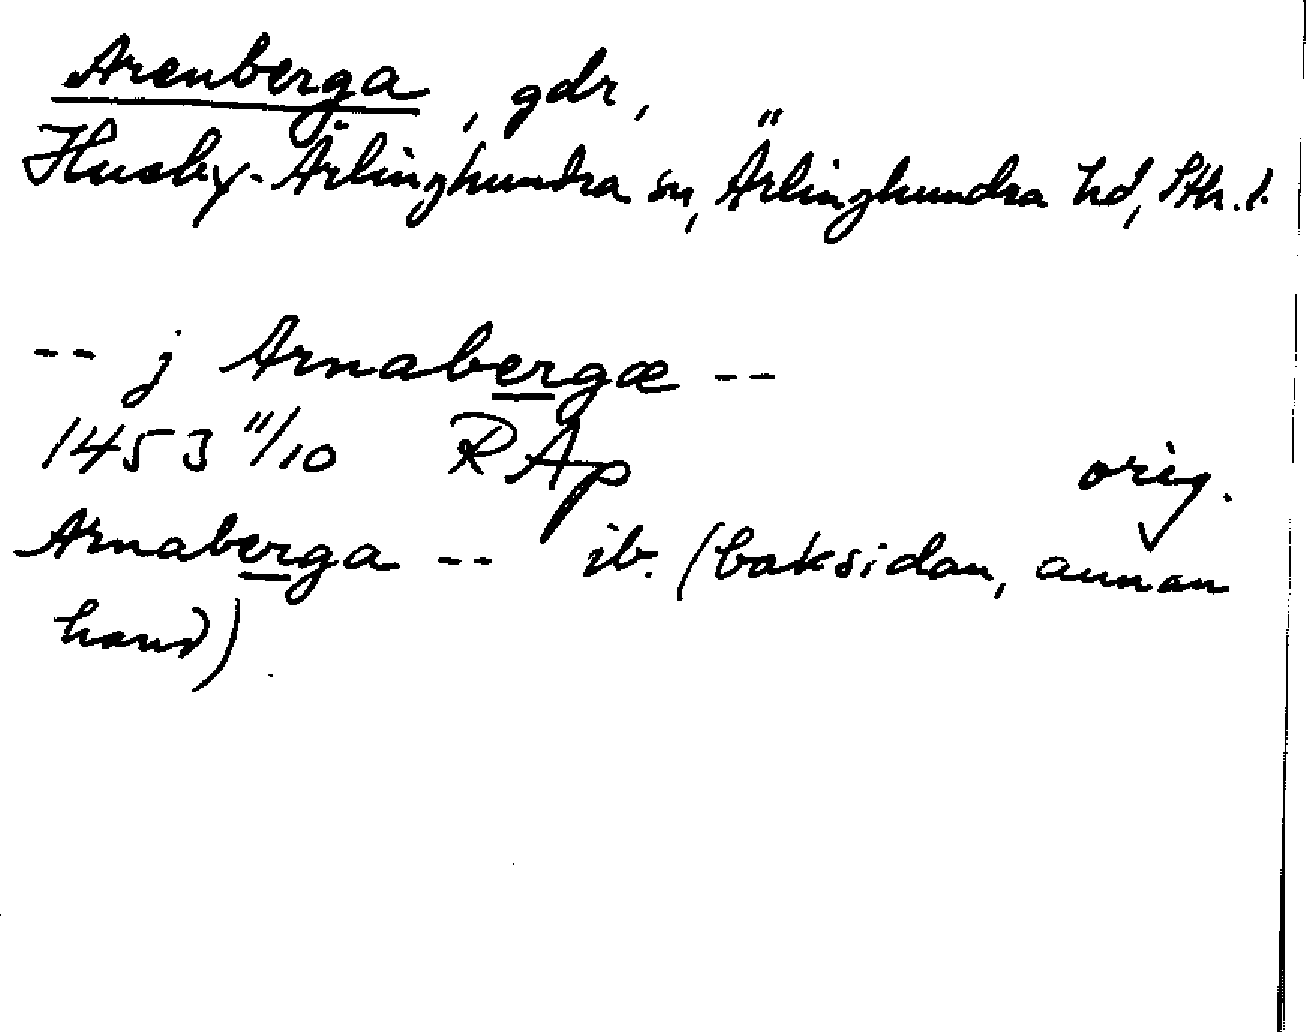 Arenberga, gdr,
Husby-Ärlinghundra sn, Ärlinghundra hd, Sth. l.
-- j Arnabergæ --
1453 11/10 RAp orig.
Arnaberga -- ib. (baksidan, annan
hand)